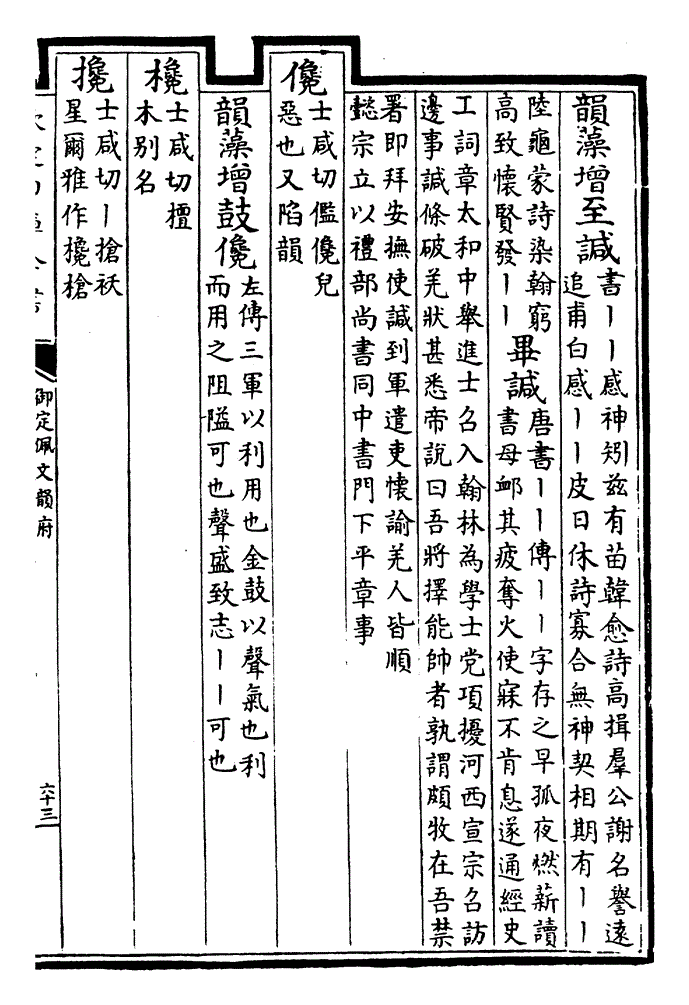 韻藻增至諴書丨丨感神矧茲有苗韓愈詩高揖羣公謝名譽遠
追甫白感丨丨皮日休詩寡合無神契相期有丨丨
陸龜蒙詩染翰窮
高致懷賢發丨丨
畢諴唐書丨丨傳丨丨字存之早孤夜燃薪讀
書母卹其疲奪火使寐不肯息遂通經史
工詞章太和中舉進士召入翰林為學士党項擾河西宣宗召訪
邊事諴條破羌狀甚悉帝說曰吾將擇能帥者孰謂頗牧在吾禁
署即拜安撫使諴到軍遣吏懷諭羌人皆順
懿宗立以禮部尚書同中書門下平章事
儳士咸切儖儳皃
惡也又陷韻
韻藻增鼓儳左傳三軍以利用也金鼓以聲氣也利
而用之阻隘可也聲盛致志丨丨可也
欃士咸切檀
木别名
攙士咸切丨搶袄
星爾雅作欃槍
御定佩文韻府
六十三